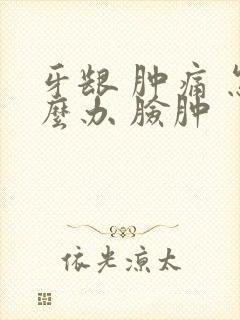 牙龈肿痛怎
麼办臉肿
依光凉太